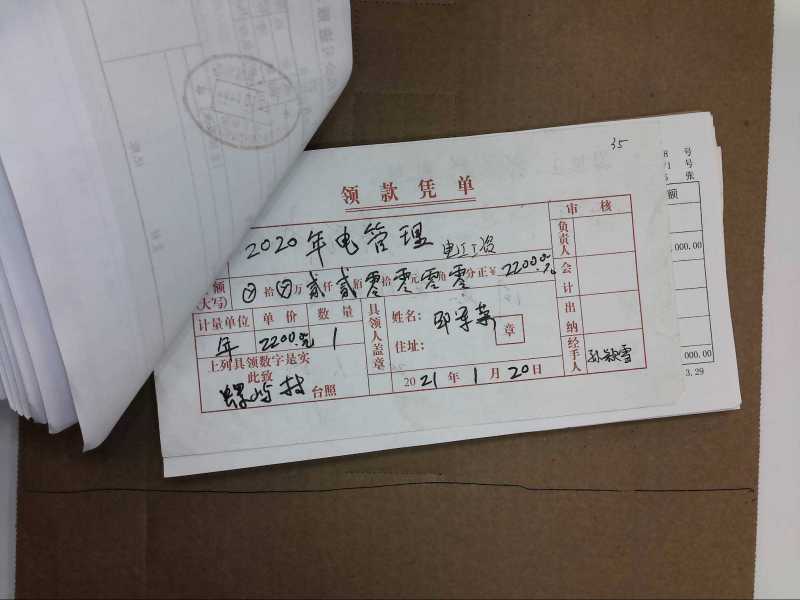 35
领款凭单
2020年电管理 电工工资
额
(大写) 拾 万 贰仟 贰佰 零拾 零元 零角 零分 正￥2200.元
计量单位 单价 数量
年 2200.元 1
上列具领数字是实
此致
螺屿村 台照
具领人盖章
姓名:
章
住址:
2021年1月20日
审核
负责人
会计
出纳
经手人
8号
号
张
额
,000.00
000.00
3.29